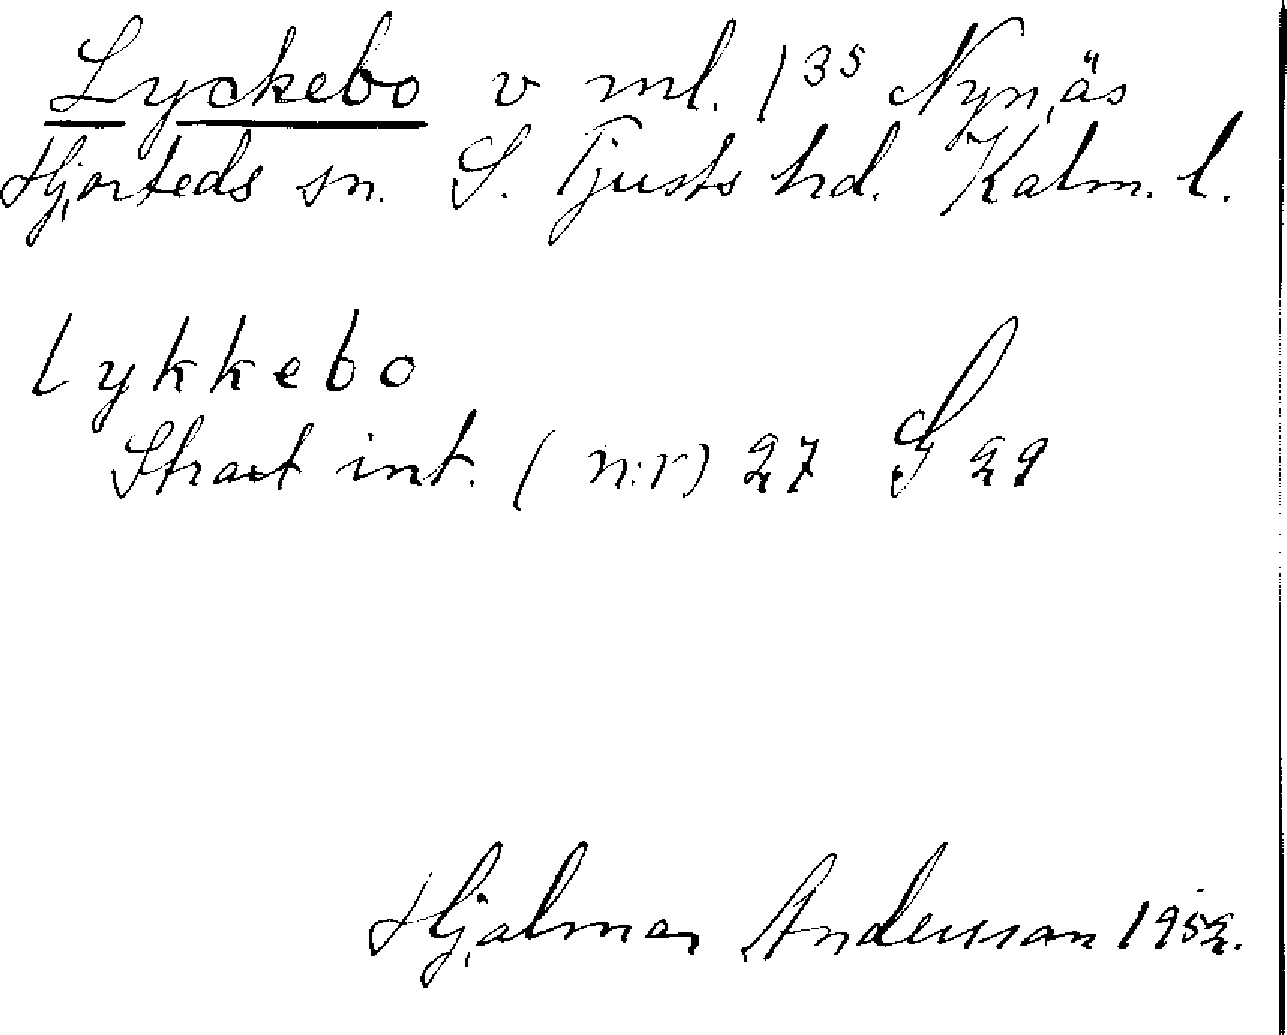 Lyckebo v ml. 135 Nynäs
Hjorteds sn. S. Tjusts hd. Kalm. l.
lykkebo
Strax int. (n:r) 27 S 29
Hjalmar Andersson 1952.